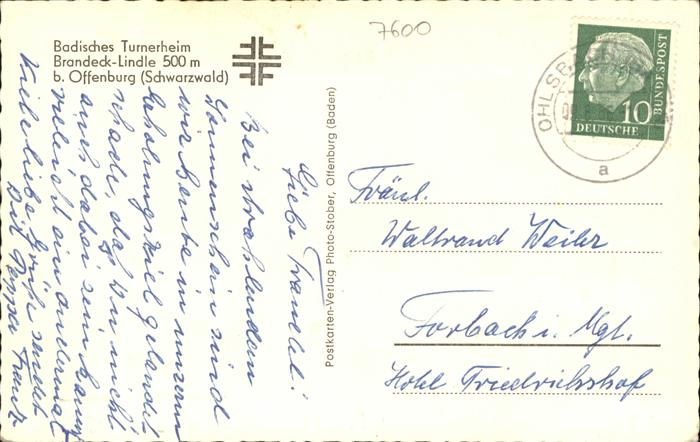 7600
Badisches Turnerheim
Brandeck-Lindle 500 m
b. Offenburg (Schwarzwald)
OHLSB
a
10
DEUTSCHE
BUNDESPOST
Postkarten-Verlag Photo-Stober, Offenburg (Baden)
Liebe
Bei strahlendem
Sonnenschein sind
wir heute in unserm
Erholungsziel gelandet
schade, daß Du nicht
auch dabei sein kannst
vieleicht ein andermal
Viele liebe Grüße sendet
Dir
Fräul.
Waltraud Weiler
Forbach i. Mgt.
Hotel Friedrichshof